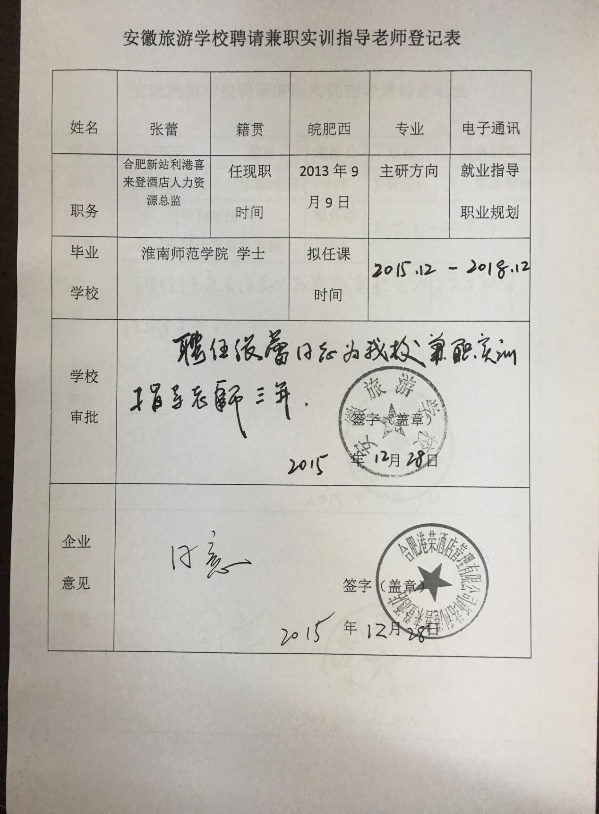 安徽旅游学校聘请兼职实训指导老师登记表
姓名 张蕾 籍贯 皖肥西 专业 电子通讯
职务 合肥新站利港喜来登酒店人力资源总监 任现职时间 2013年9月9日 主研方向 就业指导职业规划
毕业学校 淮南师范学院 学士 拟任课时间 2015.12 - 2018.12
学校审批
聘任张蕾同志为我校兼职实训
指导老师三年.
签字(盖章)
安徽旅游学校
2015年12月28日
企业意见
同意
签字(盖章)
2015年12月28日